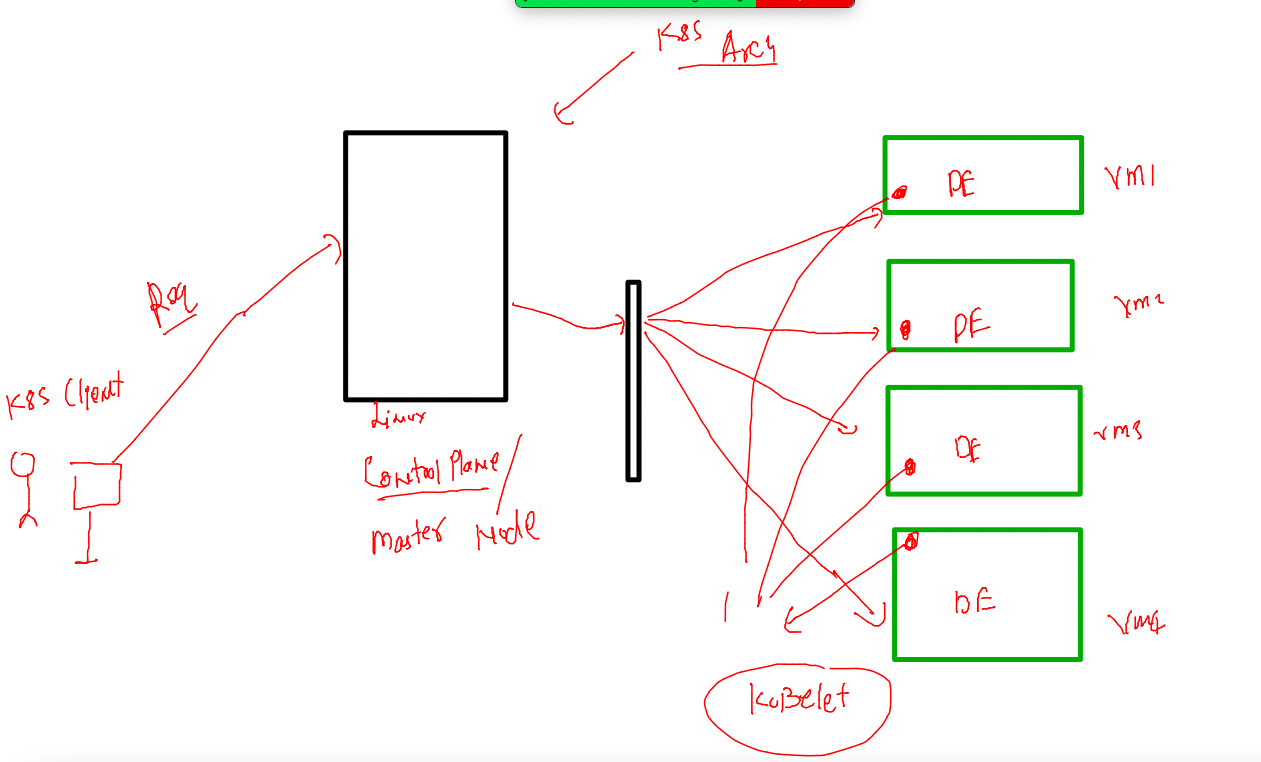 K8S Arch
Req
K8S Client
Linux
Control Plane /
Master Node
DE
VM1
DE
VM2
DE
VM3
DE
VM4
KuBelet